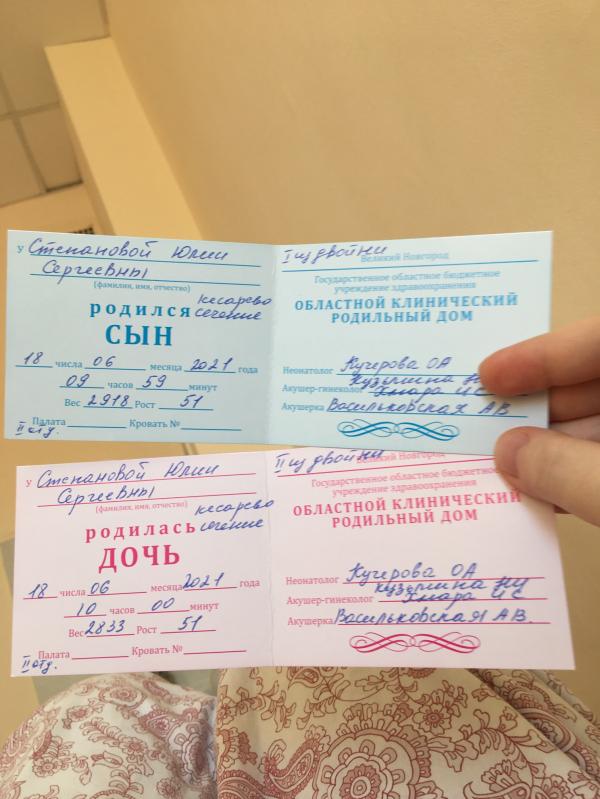 У Степановой Юлии
Сергеевны
(фамилия, имя, отчество)
родился кесарево
сечение
СЫН
18 числа 06 месяца 2021 года
09 часов 59 минут
Вес 2918 Рост 51
Палата Кровать №
II отд.
I из двойни
Великий Новгород
Государственное областное бюджетное
учреждение здравоохранения
ОБЛАСТНОЙ КЛИНИЧЕСКИЙ
РОДИЛЬНЫЙ ДОМ
Неонатолог Кучерова ОА
Кузьмина
Акушер-гинеколог Хмара ИС
Акушерка Васильковская АВ
У Степановой Юлии
Сергеевны
(фамилия, имя, отчество)
родилась кесарево
сечение
ДОЧЬ
18 числа 06 месяца 2021 года
10 часов 00 минут
Вес 2833 Рост 51
Палата Кровать №
II отд.
II из двойни
Великий Новгород
Государственное областное бюджетное
учреждение здравоохранения
ОБЛАСТНОЙ КЛИНИЧЕСКИЙ
РОДИЛЬНЫЙ ДОМ
Неонатолог Кучерова ОА
Кузьмина НИ
Акушер-гинеколог Хмара ИС
Акушерка Васильковская АВ.